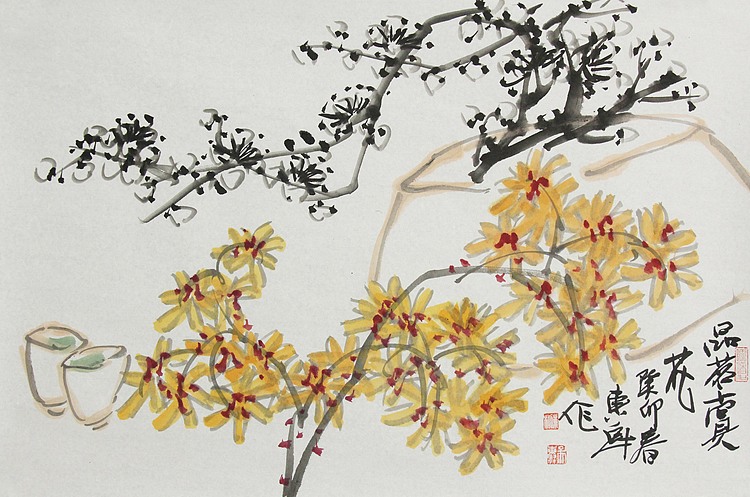 品茗賞
花
癸卯春
東
作